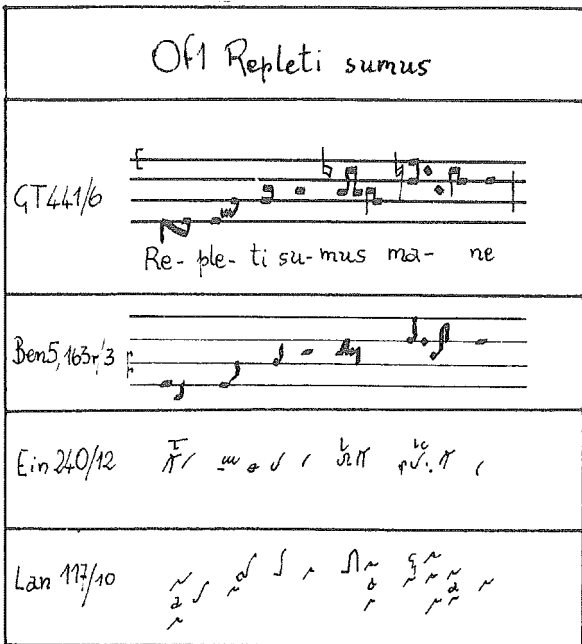 Of1 Repleti sumus
GT441/6
Re- ple- ti su- mus ma- ne
Ben5, 163r/3
Ein 240/12
Lan 117/10